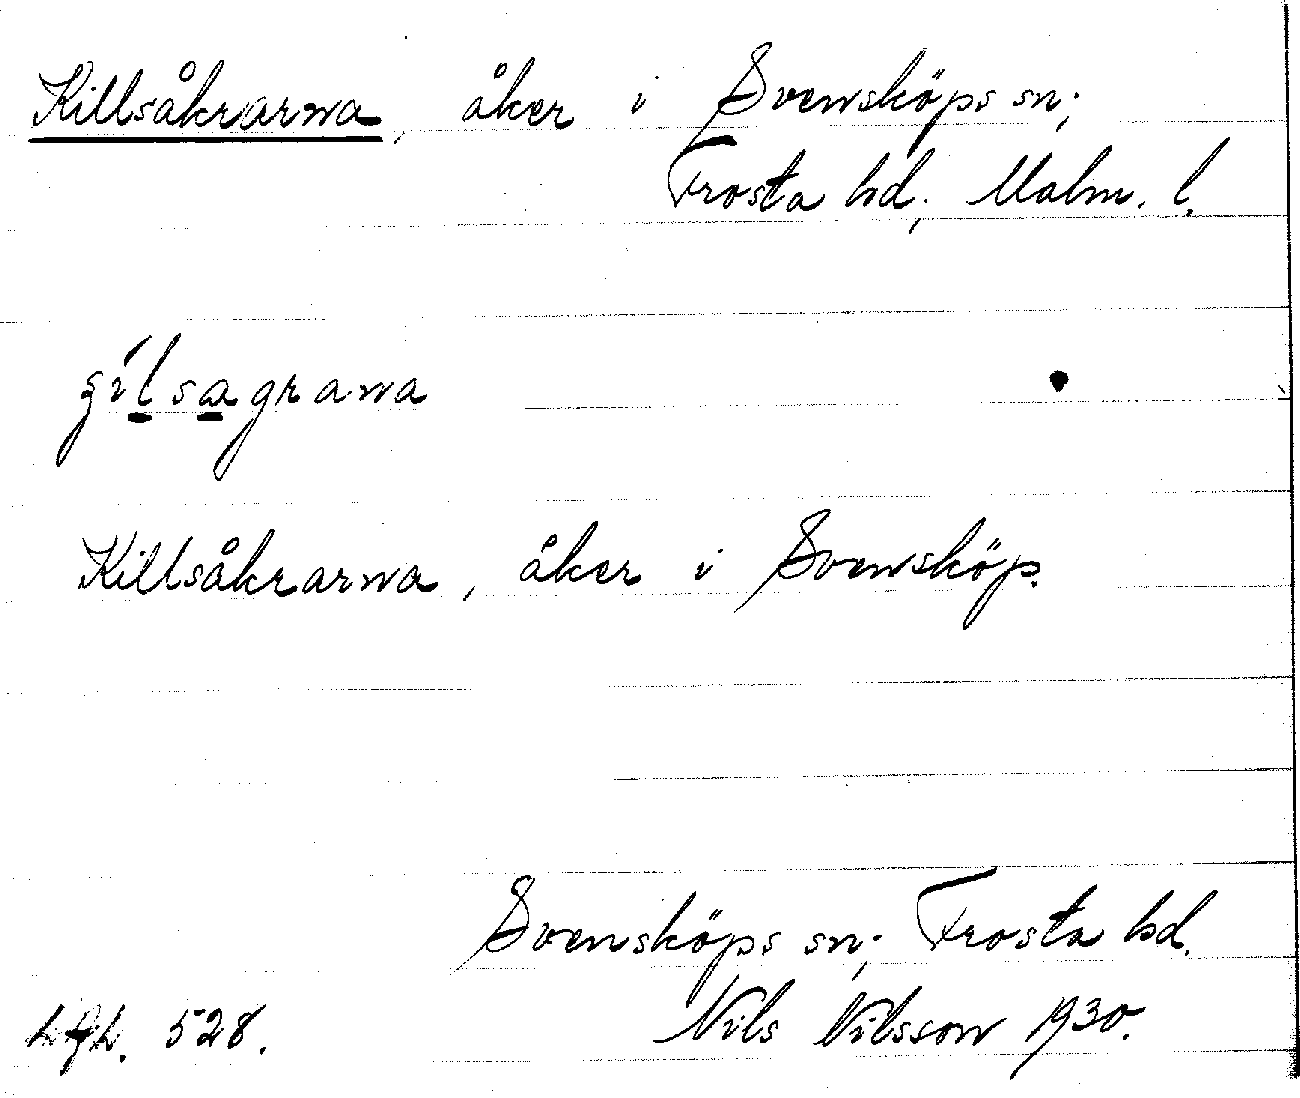 Killsåkrarna, åker i Svensköps sn;
Frosta hd, Malm. l.
gilsagrana
Killsåkrarna, åker i Svensköp.
Svensköps sn; Frosta hd.
528. Nils Nilsson 1930.